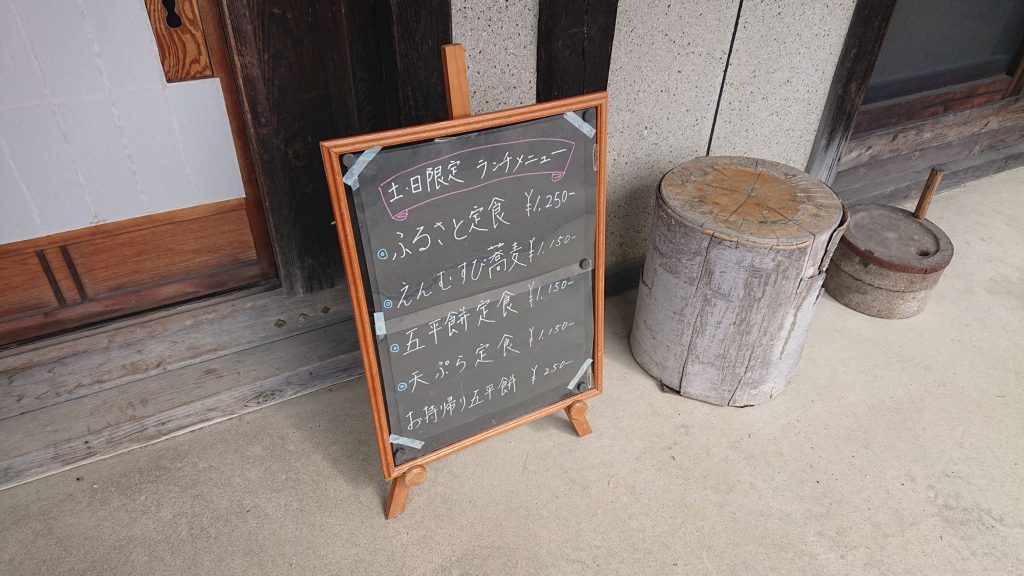 土・日限定 ランチメニュー
ふるさと定食 ¥1,250-
えんむすび蕎麦 ¥1,150-
五平餅定食 ¥1,150-
天ぷら定食 ¥1,150-
お持帰り五平餅 ¥250-